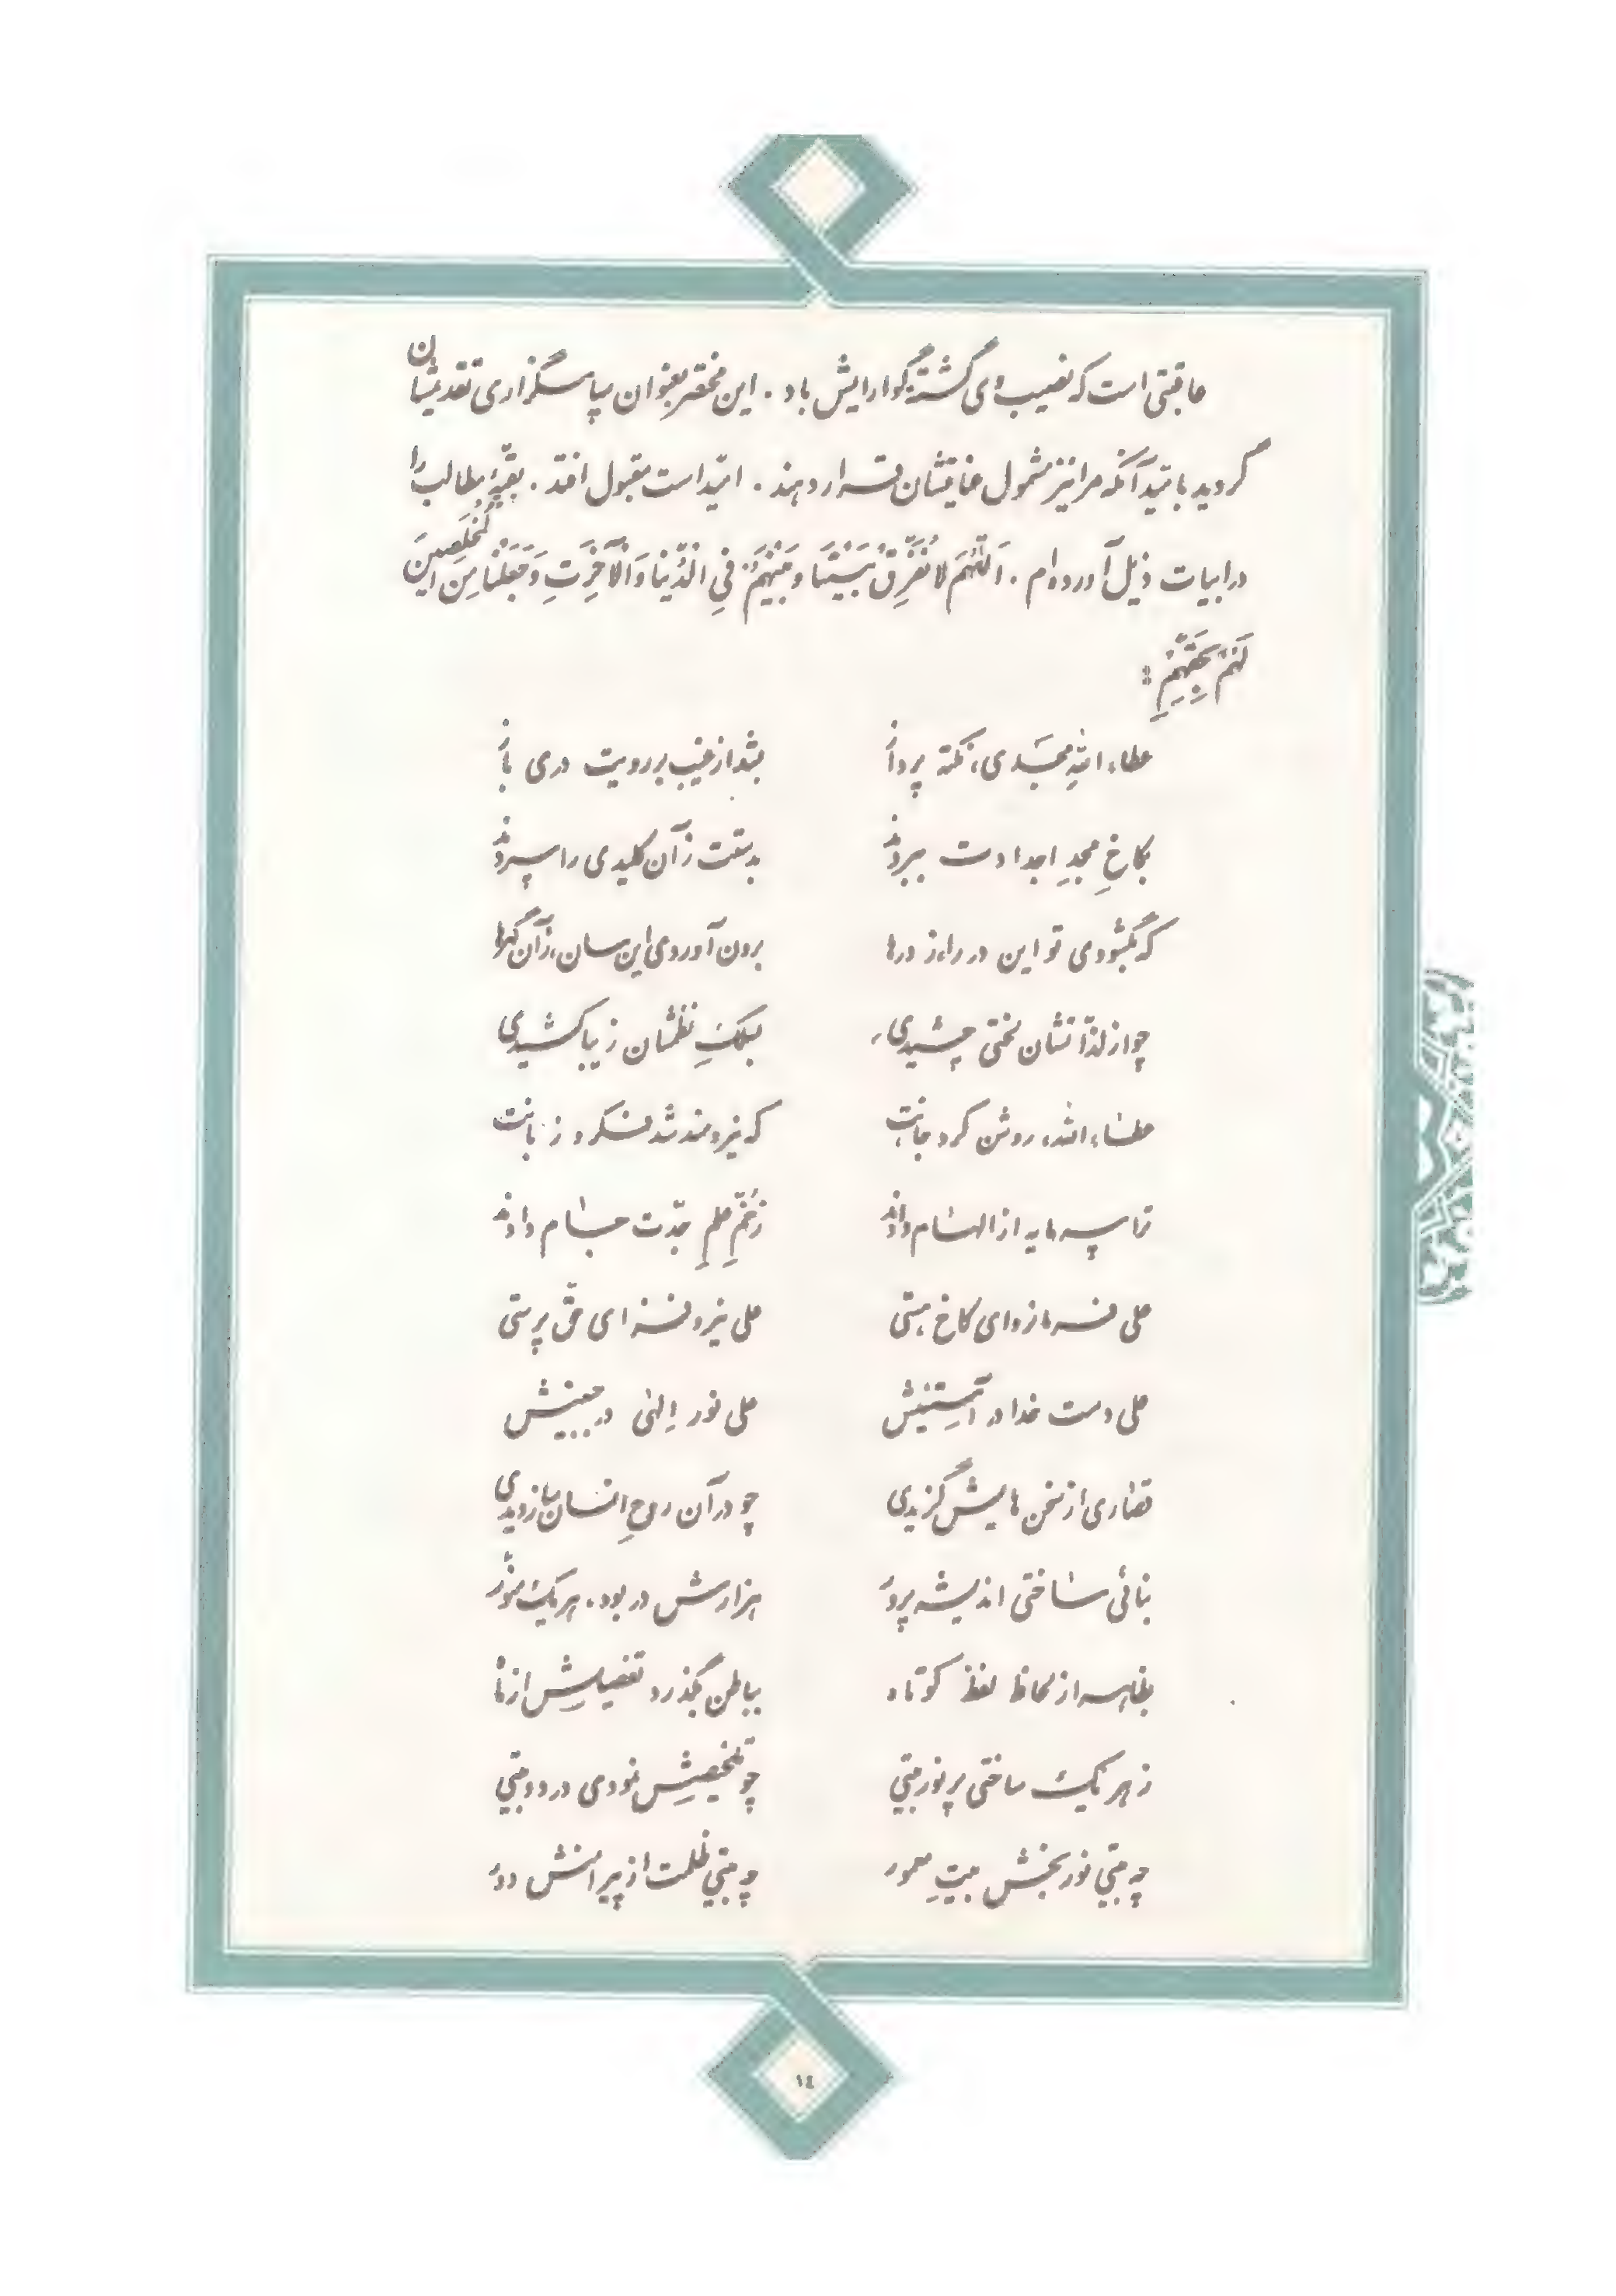 عاقبتی است که نصیب وی گشته گوارایش باد. این مختصر بعنوان سپاسگزاری تقدیمشان
گردید بامید آنکه مرا نیز مشمول عنایتشان قرار دهند. امید است مقبول افتد. بقیهٔ مطالب را
در ابیات ذیل آورده‌ام. اَللّهُمَ لا تُفَرِّقْ بَیْنَنَا وَ بَیْنَهُمْ فِی الدُّنْیَا وَالْآخِرَتِ وَجَعَلْنَا مِنَ الْمُخْلَصِینَ
لَهُمْ بِحَقِّهِمْ:
عطاء اللهِ مجدی، نکته پرداز بشد از غیب بر رویت دری باز
بکاخِ مجدِ اجدادت ببردند بدستت زآن کلیدی را سپردند
که بگشودی تو این در را، ز درها برون آوردی این سان، زآن گهرها
چو از لذّاتشان لختی چشیدی، بسلکِ نظمشان زیبا کشیدی
عطاء الله، روشن کرد جانت که نیرومند شد فکر و زبانت
ترا سرمایه از الهام دادند ز خُمِّ علمِ جدّت جام دادند
علی فرمانروای کاخ هستی علی نیروفزای حقّ پرستی
علی دست خدا در آستینش علی نور اِلهی در جبینش
قصاری از سخن هایش گزیدی چو در آن روحِ انسان ساز دیدی
بنائی ساختی اندیشه پرور هزارش در بود، هر یک منوّر
بظاهر از لحاظ لفظ کوتاه بباطن بگذرد تفصیلش از ماه
ز هر یک ساختی پر نور بیتی چو تلخیصش نمودی در دو بیتی
چه بیتی نوربخش بیتِ معمور چه بیتی ظلمت از پیرامنش دور
١٤